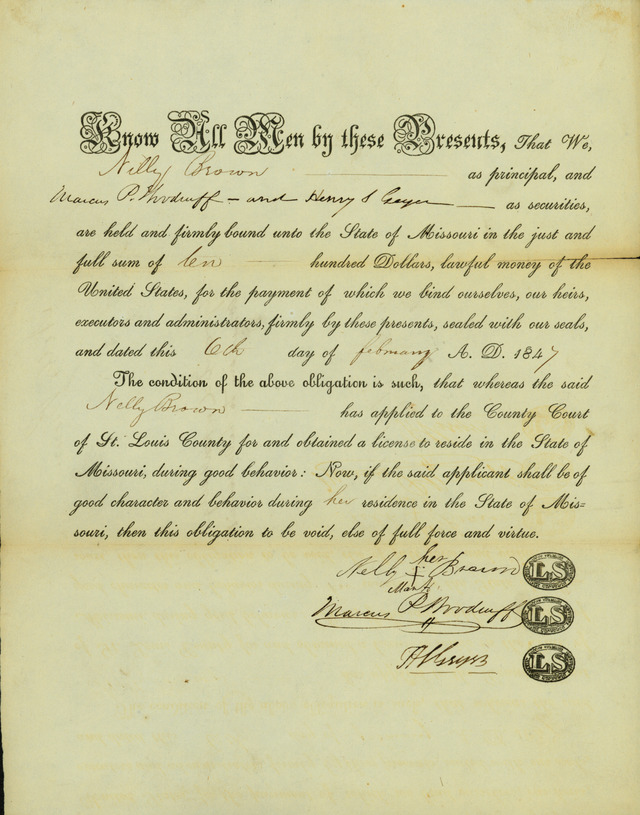 Know All Men by these Presents, That We,
Nelly Brown as principal, and
Marcus P. Woodruff - and Henry S Geyer as securities,
are held and firmly bound unto the State of Missouri in the just and
full sum of ten hundred Dollars, lawful money of the
United States, for the payment of which we bind ourselves, our heirs,
executors and administrators, firmly by these presents, sealed with our seals,
and dated this 6th day of february A. D. 1847
The condition of the above obligation is such, that whereas the said
Nelly Brown has applied to the County Court
of St. Louis County for and obtained a license to reside in the State of
Missouri, during good behavior: Now, if the said applicant shall be of
good character and behavior during her residence in the State of Mis=
souri, then this obligation to be void, else of full force and virtue.
her
Nelly + Brown LS
Mark
Marcus P Woodruff LS
H S Geyer LS